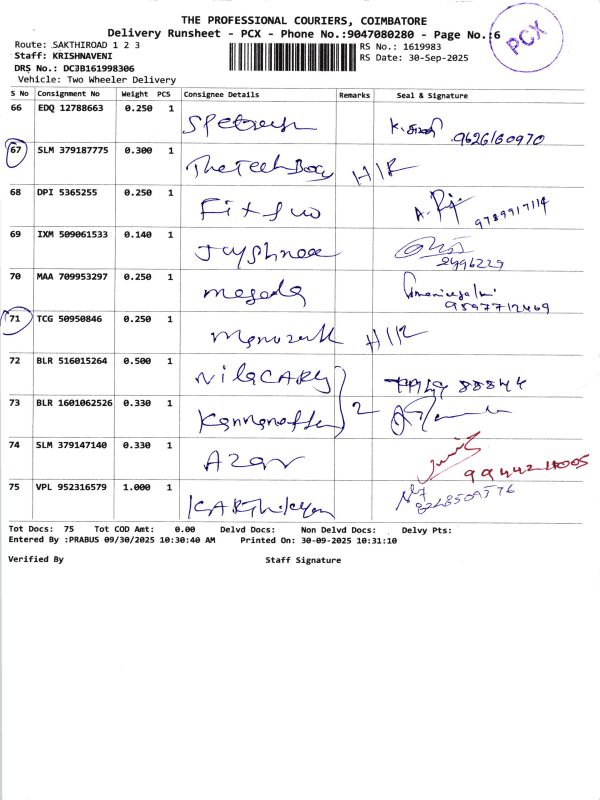 THE PROFESSIONAL COURIERS, COIMBATORE
Delivery Runsheet - PCX - Phone No.:9047080280 - Page No.:6
PCX
Route: SAKTHIROAD 1 2 3
RS No.: 1619983
Staff: KRISHNAVENI
RS Date: 30-Sep-2025
DRS No.: DCJB161998306
Vehicle: Two Wheeler Delivery
S No Consignment No Weight PCS Consignee Details Remarks Seal & Signature
66 EDQ 12788663 0.250 1
9626160970
67 SLM 379187775 0.300 1 TheTechBoxy H/R
68 DPI 5365255 0.250 1
9789917114
69 IXM 509061533 0.140 1
2496229
70 MAA 709953297 0.250 1
9597712469
71 TCG 50950846 0.250 1 H/R
72 BLR 516015264 0.500 1 NilaCARY
88844
73 BLR 1601062526 0.330 1 2
74 SLM 379147140 0.330 1 Azar
75 VPL 952316579 1.000 1 KARthikeyan
8248509576
Tot Docs: 75 Tot COD Amt: 0.00 Delvd Docs: Non Delvd Docs: Delvy Pts:
Entered By :PRABUS 09/30/2025 10:30:40 AM Printed On: 30-09-2025 10:31:10
Verified By Staff Signature